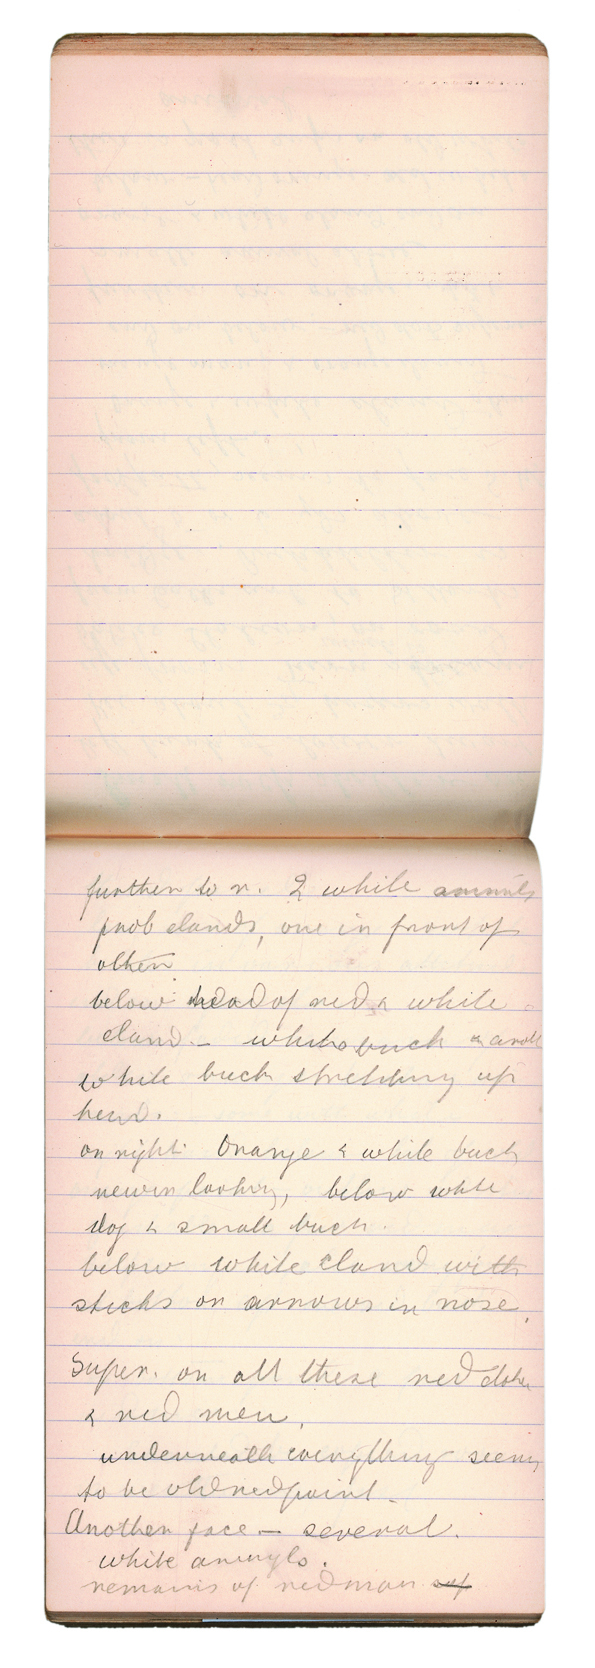 further to r. 2 white animals
prob elands, one in front of
other
below head of red & white
eland – white buck &
white buck stretching up
head.
on right. Orange & white buck
newer looking, below white
dog & small buck.
below white eland with
sticks or arrows in nose.
Super. on all these red
& red men.
underneath everything seems
to be old red paint.
Another face – several.
white animals.
remains of red man sup